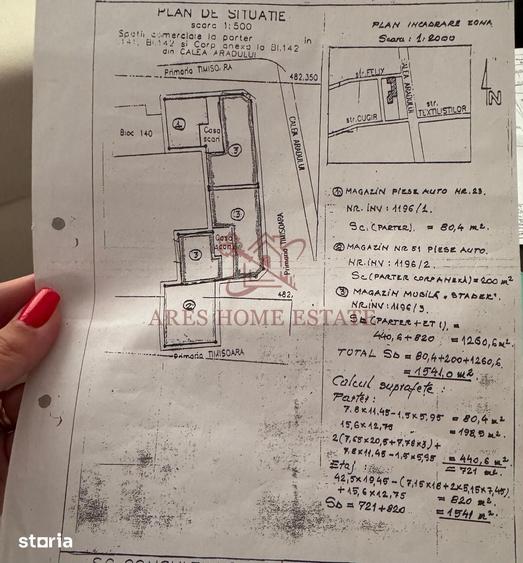 PLAN DE SITUATIE
scara 1:500
Spatii comerciale la parter in
141, Bl.142 si Corp anexa la Bl.142
din CALEA ARADULUI
Primaria TIMISOARA
482,350
Bloc 140
1
Casa
scarii
3
CALEA ARADULUI
3
Casa
scarii
3
Primaria TIMISOARA
2
482,
Primaria TIMISOARA
PLAN INCADRARE ZONA
Scara : 1:2000
str. FELIX
CALEA ARADULUI
str.CUGIR
str.
TEXTILISTILOR
N
① MAGAZIN PIESE AUTO NR.23.
NR. INV : 1196/1.
Sc.(PARTER). = 80,4 m².
② MAGAZIN NR 51 PIESE AUTO.
NR. INV : 1196/2.
Sc (PARTER CORP ANEXĂ) = 200 m²
③ MAGAZIN MOBILĂ "STADER".
NR. INV : 1196/3.
SD (PARTER + ET 1), =
440,6 + 820 = 1260,6 m².
TOTAL SD = 80,4+200+1260,6
= 1541,0 m²
Calcul suprafete :
Parter:
7.8 x 11,45 - 1,5 x 5,95 = 80,4 m²
15,6 x 12,75 = 198,9 m².
2(7,65 x 20,5 + 7,78 x 3) +
7.8 x 11,45 - 1,5 x 5,95 = 440,6 m²
= 721 m².
Etaj :
42,5 x 19,45 - (7,15 x 18 + 2 x 5,15 x 7,45)
+ 15,6 x 12,75 = 820 m²
SD = 721 + 820 = 1541 m².
ARES HOME ESTATE
storia